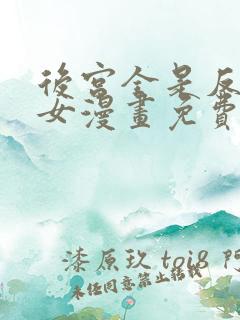 後宮全是反
女漫畫免費
漆原玖 toi8 阿
未经同意禁止转载